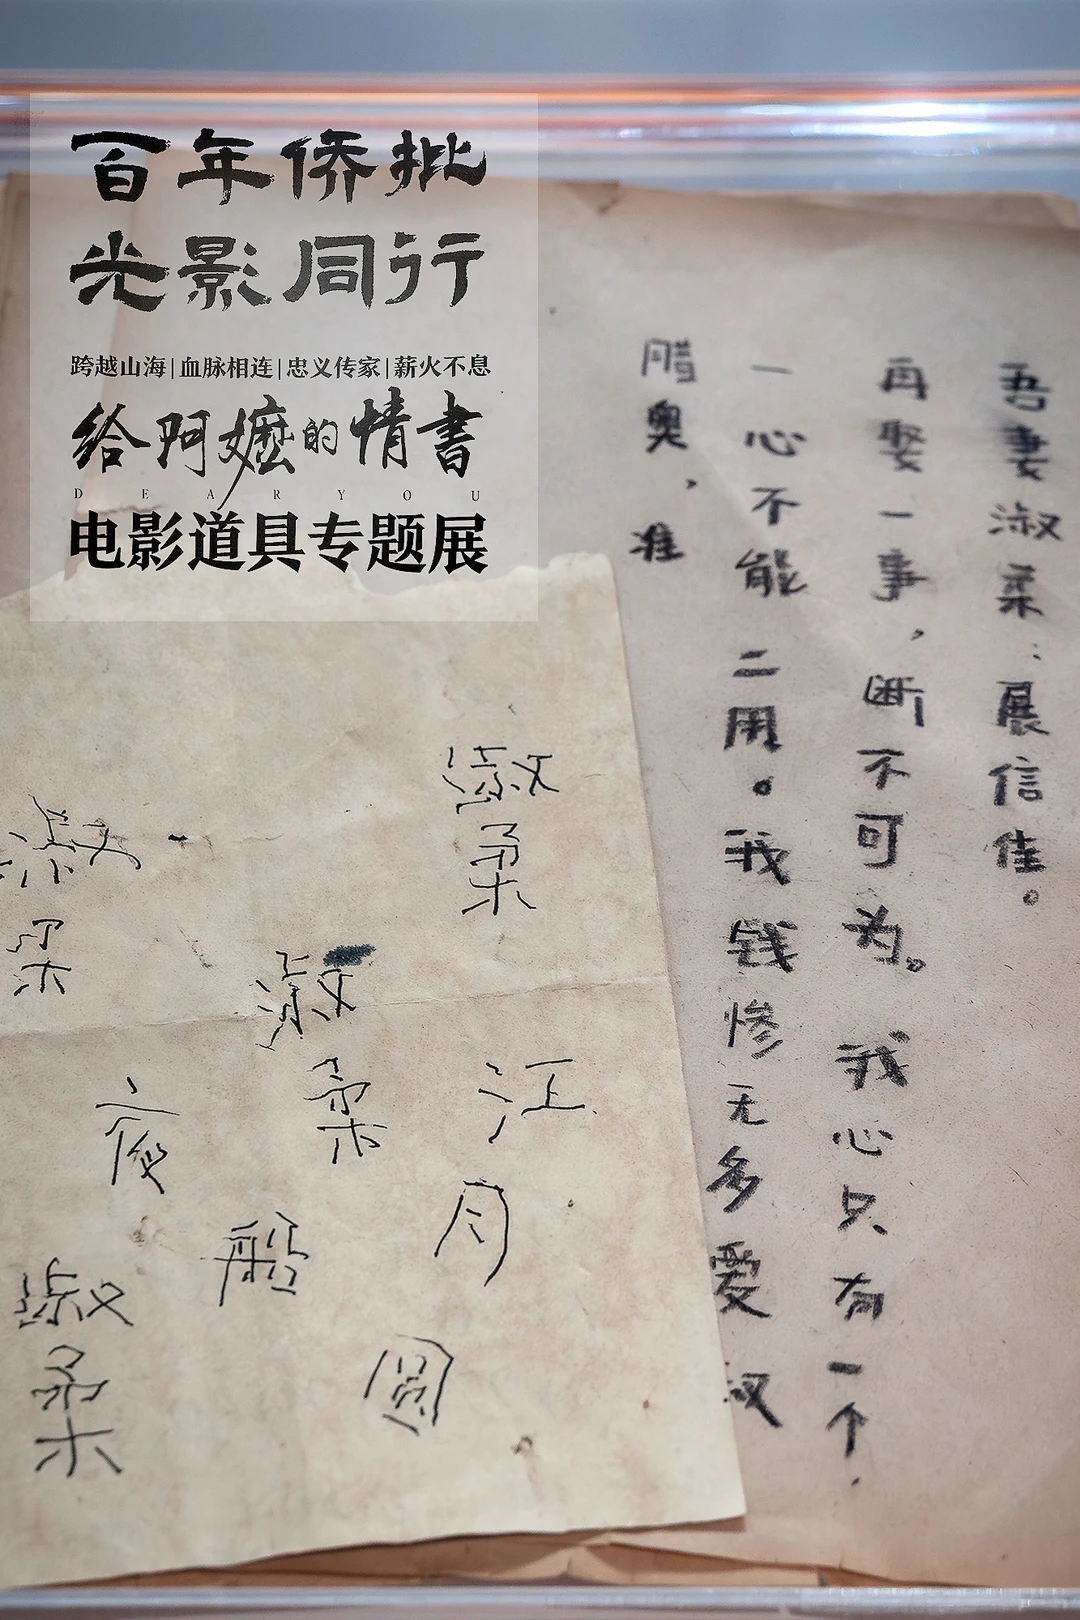 百年侨批
光影同行
跨越山海|血脉相连|忠义传家|薪火不息
给阿嬷的情書
DEAR YOU
电影道具专题展
吾妻淑柔：展信佳。
再娶一事，断不可为。我心只有一个，
一心不能二用。我钱惨无多爱
腊奥，准
淑柔
江月圆
淑柔
船
夜
淑柔
淑柔